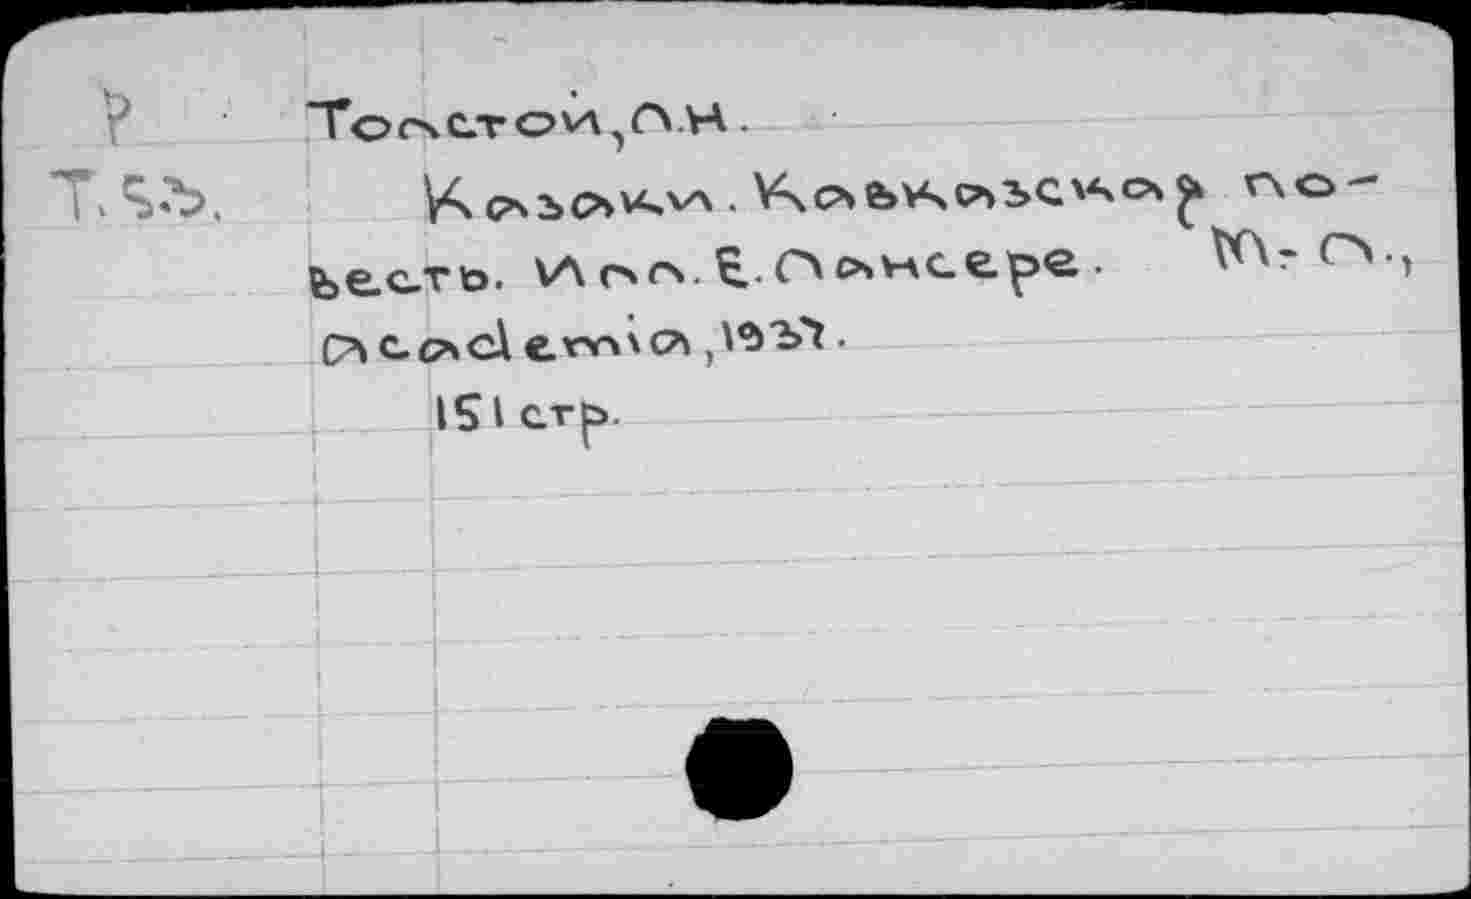 P Толстой, Л.Н.
T.S.B. Казаки. Кавказская по-
весть. Илл. Е. Лансере. М.-Л.,
academia, 1937.
151 стр.